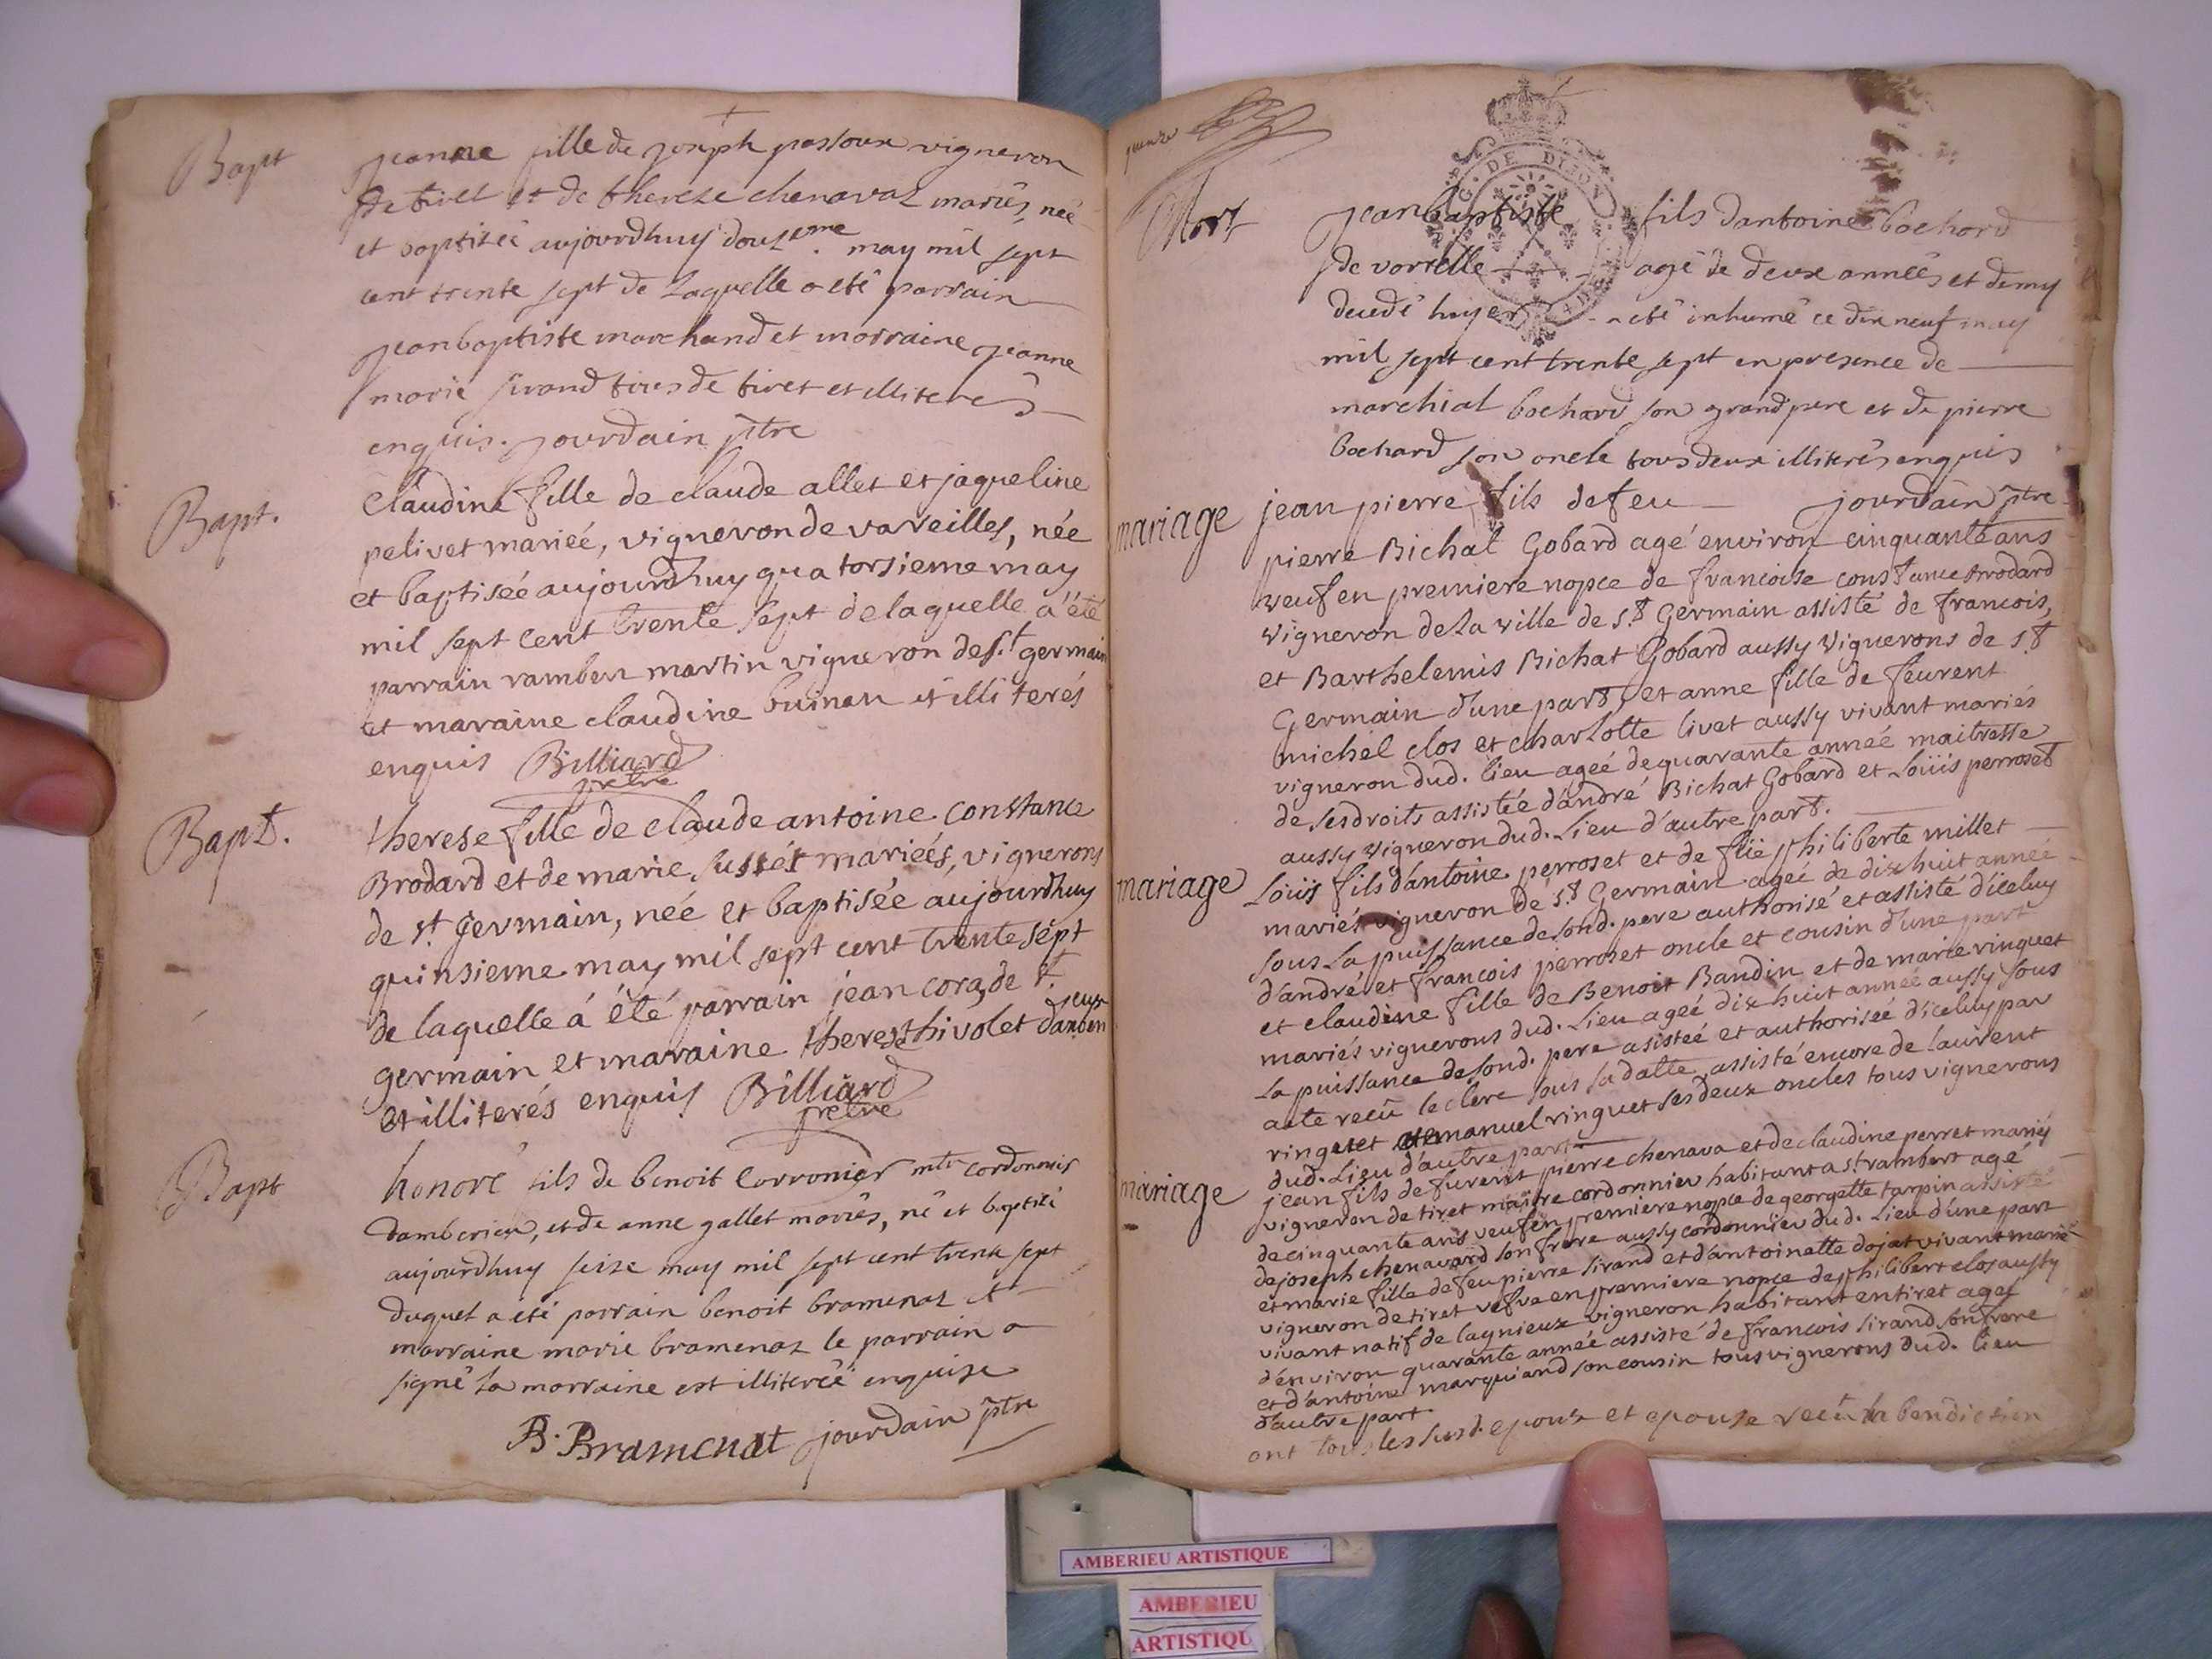 Bapt
jeanne fille de joseph passoux vigneron
de tiret et de therese chenavaz mariés, née
et baptiseé aujourdhuy douseme may mil sept
cent trente sept de laquelle a eté parrain
jean baptiste marchand et marraine jeanne
marie sirand tous de tiret et illiterés
enquis. jourdain ptre
Bapt.
Claudine fille de claude allet et jaqueline
pelivet marieé, vigneron de vareilles, née
et baptiséé aujourdhuy quatorsieme may
mil sept cent trente sept de laquelle a'été
parrain rambert martin vigneron de st germain
et maraine claudine buinan et illiterés
enquis Billiard
pretre
Bapt.
therese fille de claude antoine constance
Brodard et de marie sussét marieés, vignerons
de st germain, née et baptisée aujourdhuy
quinsieme may mil sept cent trente sept
de laquelle á été parrain jean coraz de st
germain et maraine therese thivolet d'amberieux
et illiterés enquis Billiard
pretre
Bapt
honoré fils de benoit Corronier mtre cordonnier
damberieu, et de anne gallet mariés, né et baptisé
aujourdhuy seize may mil sept cent trente sept
duquel a eté parrain benoit bramenaz et
marraine marie bramenaz le parrain a
signé la marraine est illitereé enquise
B. Bramenat jourdain ptre
G. DE DIJON
Mort
jean baptiste fils dantoine bochard
de vareille agé de deux anneés et demy
decedé hyer a eté inhumé ce dix neuf may
mil sept cent trente sept en presence de
marchial bochard son grand pere et de pierre
bochard son oncle tous deux illiterés enquis
jourdain ptre
mariage
jean pierre fils de feu
pierre Bichat Gobard agé environ cinquante ans
veuf en premiere nopce de francoise constance Brodard
vigneron de la ville de st Germain assisté de francois,
et Barthelemis Bichat Gobard aussy vignerons de st
Germain d'une part, et anne fille de feurent
michel clos et charlotte livet aussy vivant mariés
vigneron dud. lieu ageé de quarante anneé maitresse
de ses droits assistée d'andré Bichat Gobard et Loüis perroset
aussy vigneron dud. Lieu d'autre part.
mariage
Loüis fils d'antoine perroset et de füe philiberte millet
mariés vigneron de st Germain ageé de dix huit anneé
sous la puissance de sond. pere authorisé et assisté d'iceluy
d'andré et francois perroset oncle et cousin d'une part
et claudine fille de Benoit Baudin et de marie ringuet
mariés vignerons dud. Lieu ageé dix huit anneé aussy sous
La puissance de sond. pere asisteé et authoriseé d'iceluy par
acte recü leclerc sous sa datte, assisté encore de laurent
ringuet et emanuel ringuet ses deux oncles tous vignerons
dud. Lieu d'autre part
mariage
jean fils de furent pierre chenava et de claudine perret mariés
vigneron de tiret maitre cordonnier habitant a st rambert agé
de cinquante ans veuf en premiere nopce de georgette tarpin assisté
de joseph chenavard son frere aussy cordonnier dud. Lieu d'une part
et marie fille de feu pierre sirand et d'antoinette dojat vivant marié
vigneron de tiret vefve en premiere nopce de philibert clos aussy
vivant natif de lagnieux vigneron habitant en tiret ageé
d'environ quarante anneé assisté de francois sirand son frere
et d'antoine marquiand son cousin tous vignerons dud. lieu
d'autre part.
ont tous les susd. epoux et epouse recü la bendiction
AMBERIEU ARTISTIQUE
AMBERIEU
ARTISTIQU